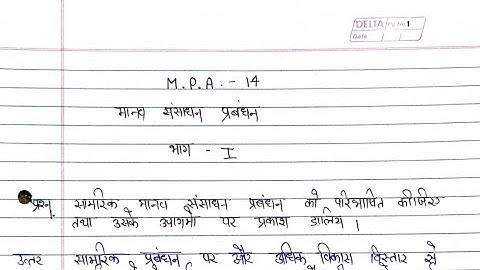 DELTA Pg No. 1
Date
M.P.A. - 14
मानव संसाधन प्रबंधन
भाग - I
प्रश्न. सामरिक मानव संसाधन प्रबंधन को परिभाषित कीजिए
तथा उसके उपागमों पर प्रकाश डालिये ।
उत्तर सामरिक प्रबंधन पर और अधिक विस्तार से